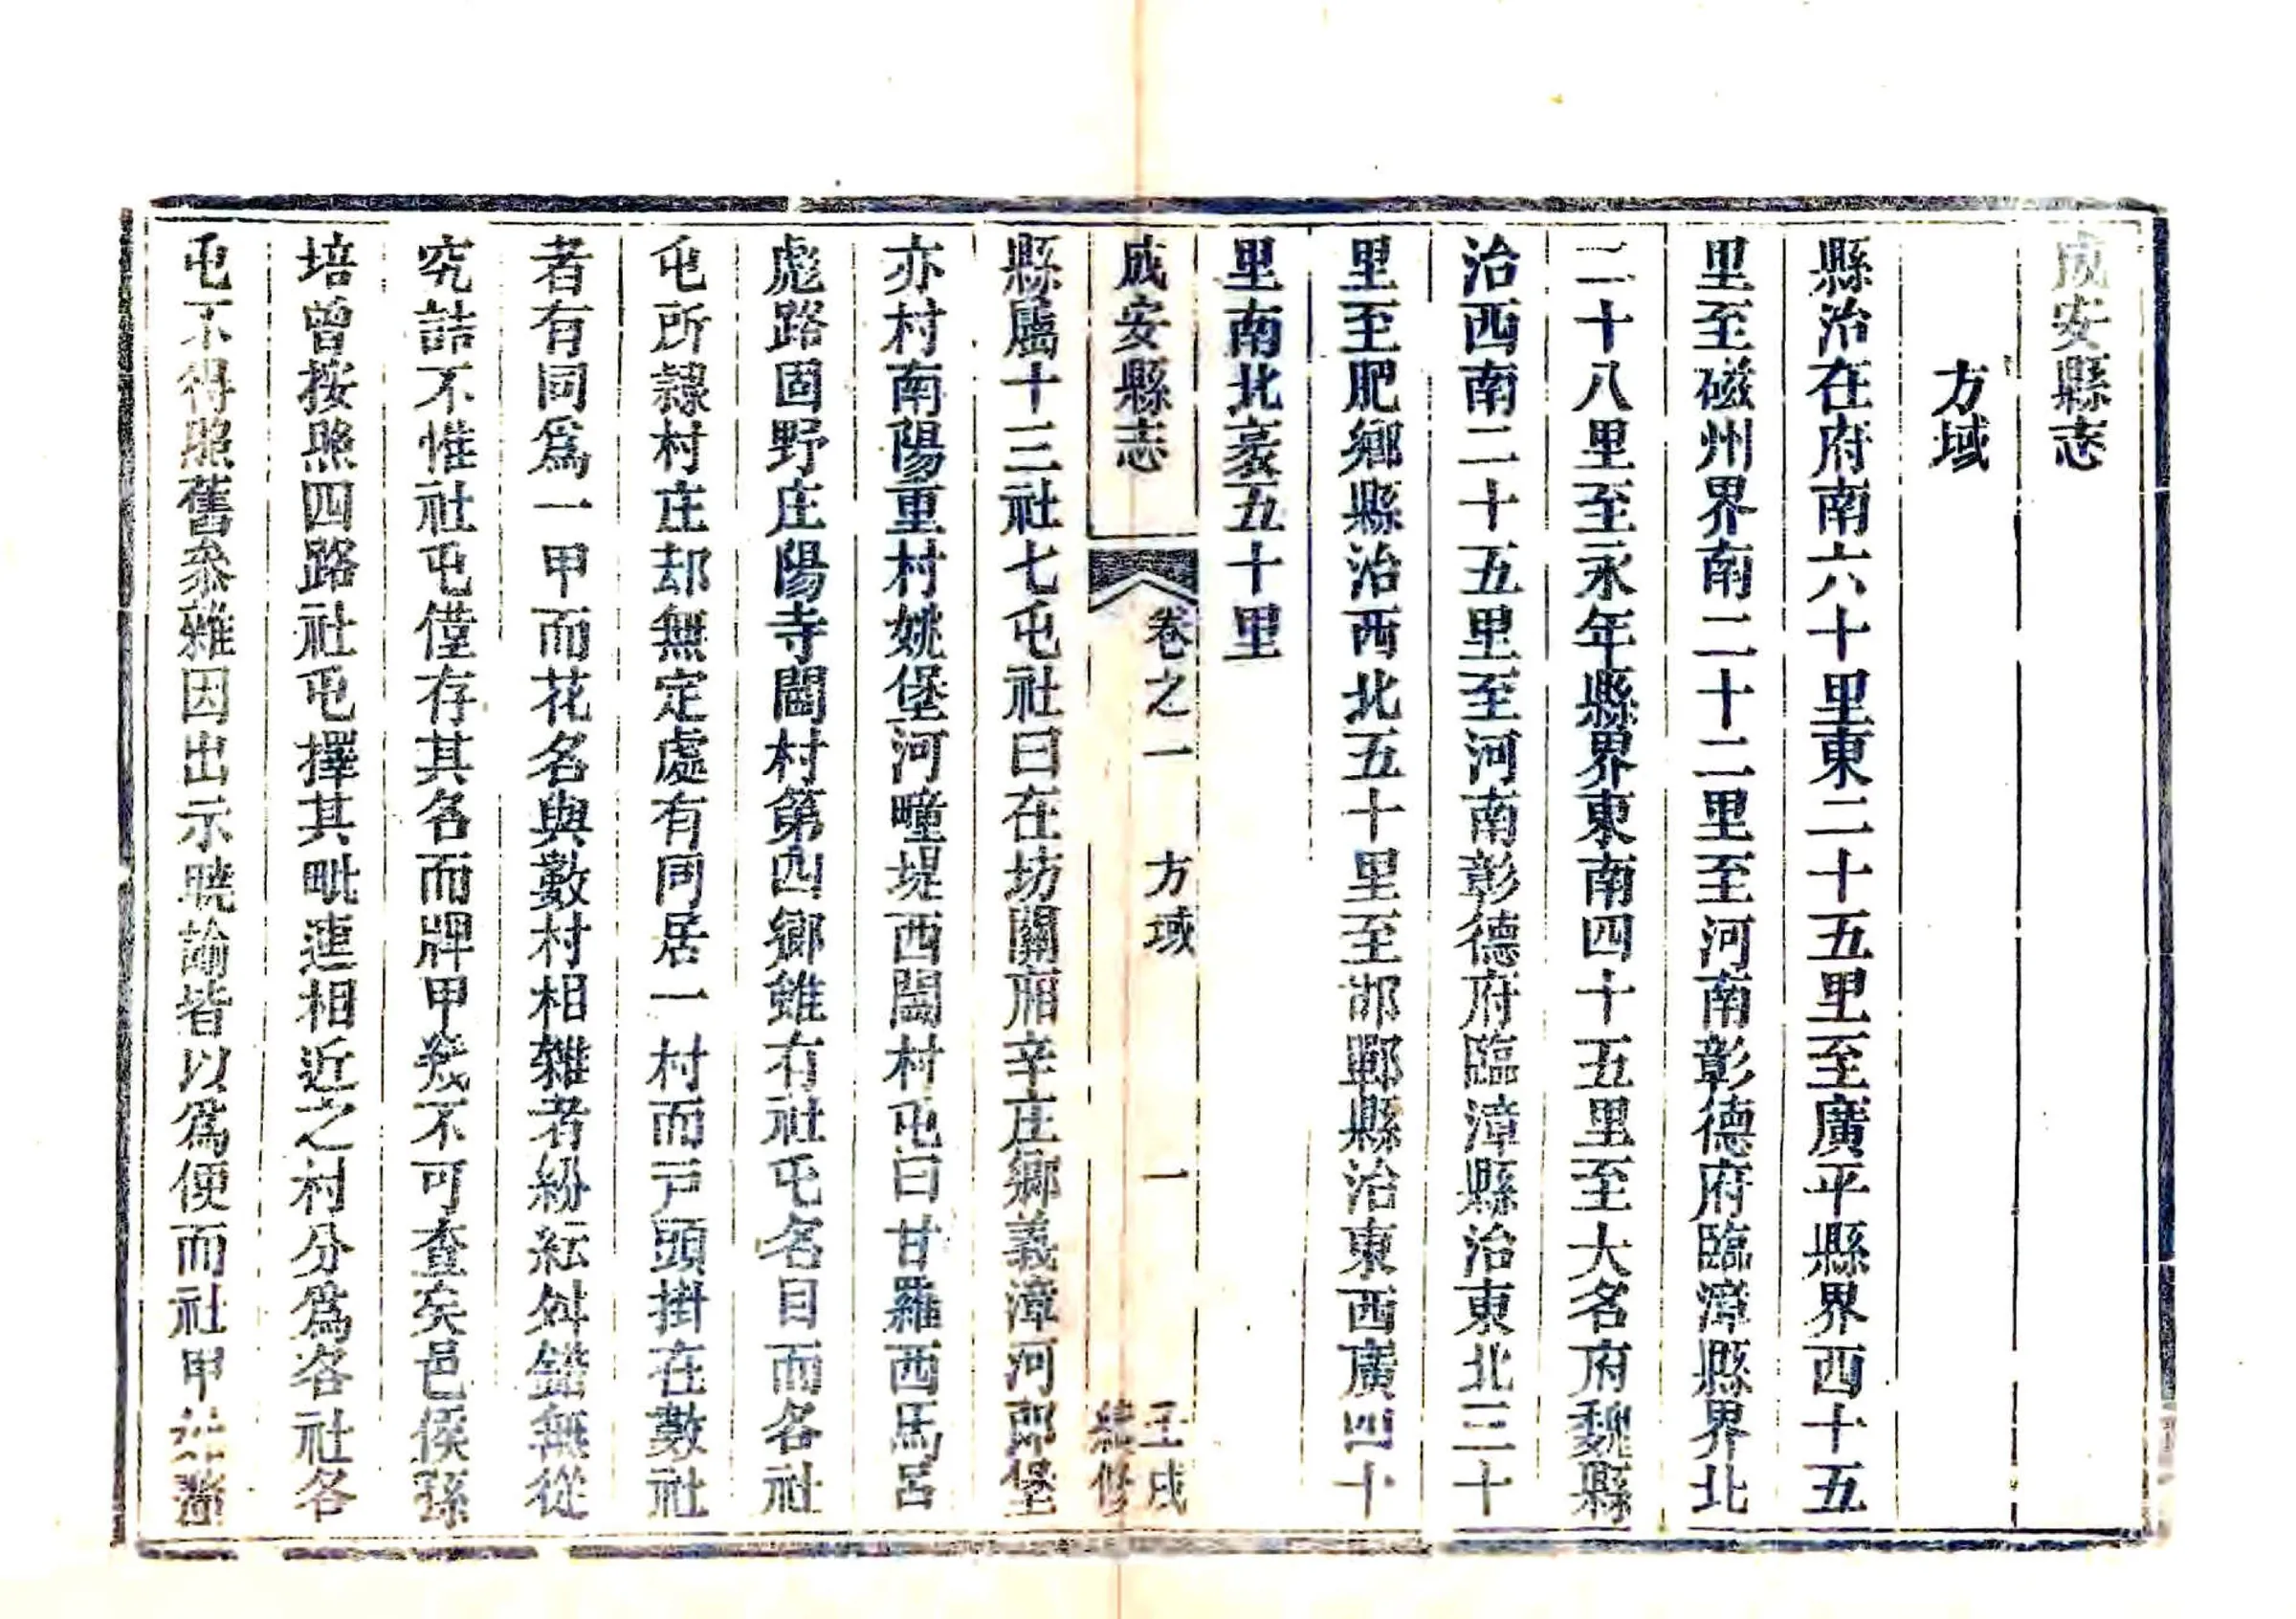 成安縣志
方域
縣治在府南六十里東二十五里至廣平縣界西十五
里至磁州界南二十二里至河南彰德府臨漳縣界北
二十八里至永年縣界東南四十五里至大名府魏縣
治西南二十五里至河南彰德府臨漳縣治東北三十
里至肥鄉縣治西北五十里至邯鄲縣治東西廣四十
里南北袤五十里
成安縣志 卷之一 方域 一 壬戌續修
縣屬十三社七屯社曰在坊關廂辛庄鄉義漳河郎堡
亦村南陽重村姚堡河疃堤西閻村屯曰甘羅西馬呂
彪路固野庄陽寺閻村第四鄉雖有社屯名目而各社
屯所隸村庄却無定處有同居一村而戸頭掛在數社
者有同爲一甲而花名與數村相雜者紛紜舛錯無從
究詰不惟社屯僅存其名而牌甲幾不可查矣邑侯孫
培曾按照四路社屯擇其毗連相近之村分爲各社各
屯不得照舊叅雜因出示曉諭皆以爲便而社甲